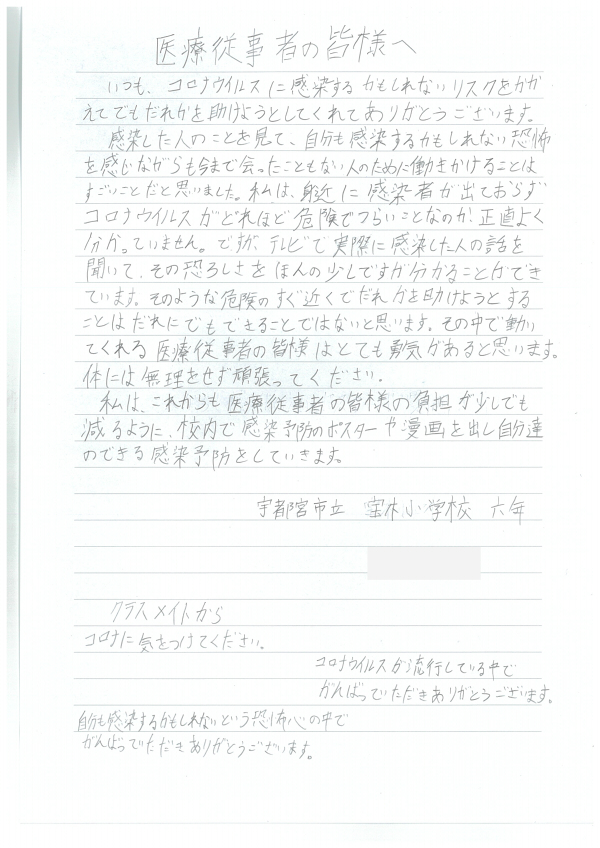 医療従事者の皆様へ
いつも、コロナウイルスに感染するかもしれないリスクをかか
えてでもだれかを助けようとしてくれてありがとうございます。
感染した人のことを見て、自分も感染するかもしれない恐怖
を感じながらも今まで会ったこともない人のために働きかけることは
すごいことだと思いました。私は、身近に感染者が出ておらず
コロナウイルスがどれほど危険でつらいことなのか、正直よく
分かっていません。ですが、テレビで実際に感染した人の話を
聞いて、その恐ろしさをほんの少しですが分かることができ
ています。そのような危険のすぐ近くでだれかを助けようとする
ことはだれにでもできることではないと思います。その中で動い
てくれる医療従事者の皆様はとても勇気があると思います。
体には無理をせず頑張ってください。
私は、これからも医療従事者の皆様の負担が少しでも
減るように、校内で感染予防のポスターや漫画を出し自分達
のできる感染予防をしていきます。
宇都宮市立 宝木小学校 六年
クラスメイトから
コロナに気をつけてください。
コロナウイルスが流行している中で
がんばっていただきありがとうございます。
自分も感染するかもしれないという恐怖心の中で
がんばっていただきありがとうございます。